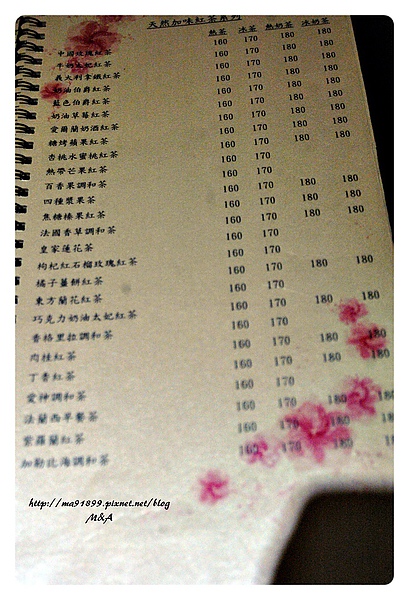 天然加味紅茶系列
熱茶 冰茶 熱奶茶 冰奶茶
中國玫瑰紅茶 160 170 180 180
牛奶太妃紅茶 160 170 180 180
義大利拿鐵紅茶 160 170 180 180
奶油伯爵紅茶 160 170 180 180
藍色伯爵紅茶 160 170 180 180
奶油草莓紅茶 160 170 180 180
愛爾蘭奶酒紅茶 160 170 180 180
糖烤蘋果紅茶 160 170 180 180
杏桃水蜜桃紅茶 160 170 180 180
熱帶芒果紅茶 160 170
百香果調和茶 160 170
四種漿果茶 160 170 180 180
焦糖榛果紅茶 160 170 180 180
法國香草調和茶 160 170 180 180
皇家蓮花茶 160 170
枸杞紅石榴玫瑰紅茶 160 170
橘子薑餅紅茶 160 170 180 180
東方蘭花紅茶 160 170
巧克力奶油太妃紅茶 160 170 180 180
香格里拉調和茶 160 170
肉桂紅茶 160 170 180 180
丁香紅茶 160 170 180 180
愛神調和茶 160 170
法蘭西早餐茶 160 170 180 180
紫羅蘭紅茶 160 170 180 180
加勒比海調和茶 160 170 180 180
http://ma91899.pixnet.net/blog
M&A